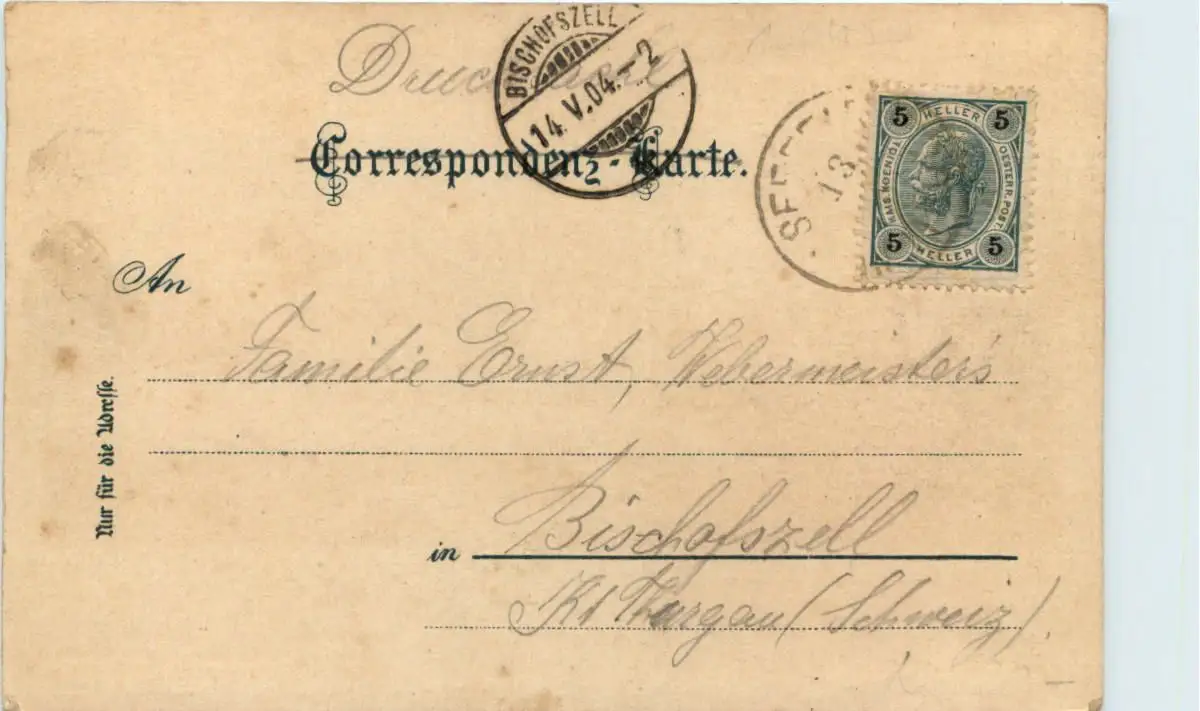 Drucksache
BISCHOFSZELL
14. V. 04. – 2
Correspondenz-Karte.
13
5 HELLER 5
KAIS. KOENIGL.
OESTERR. POST.
5 HELLER 5
An
Familie Ernst, Webermeister's
Nur für die Adresse.
in Bischofszell
Kt Thurgau (Schweiz)